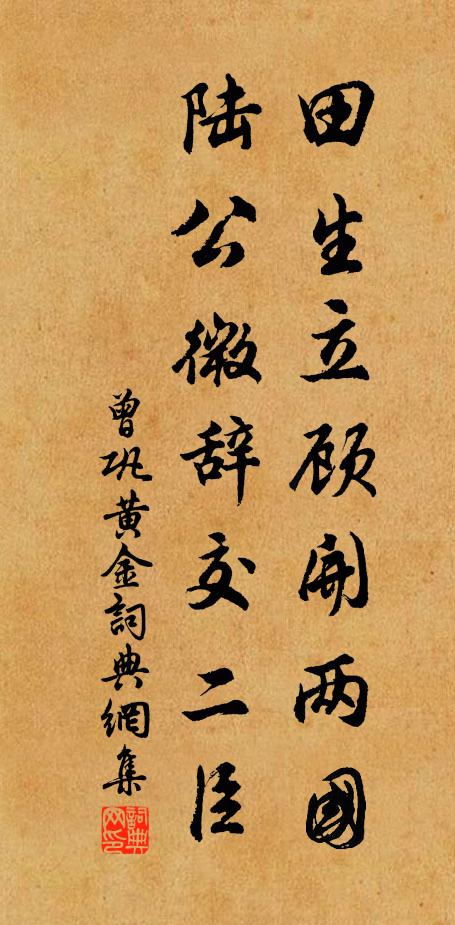 田生立顾開两國
陆公微辞交二臣
曾巩黄金詞典網集
詞典网印